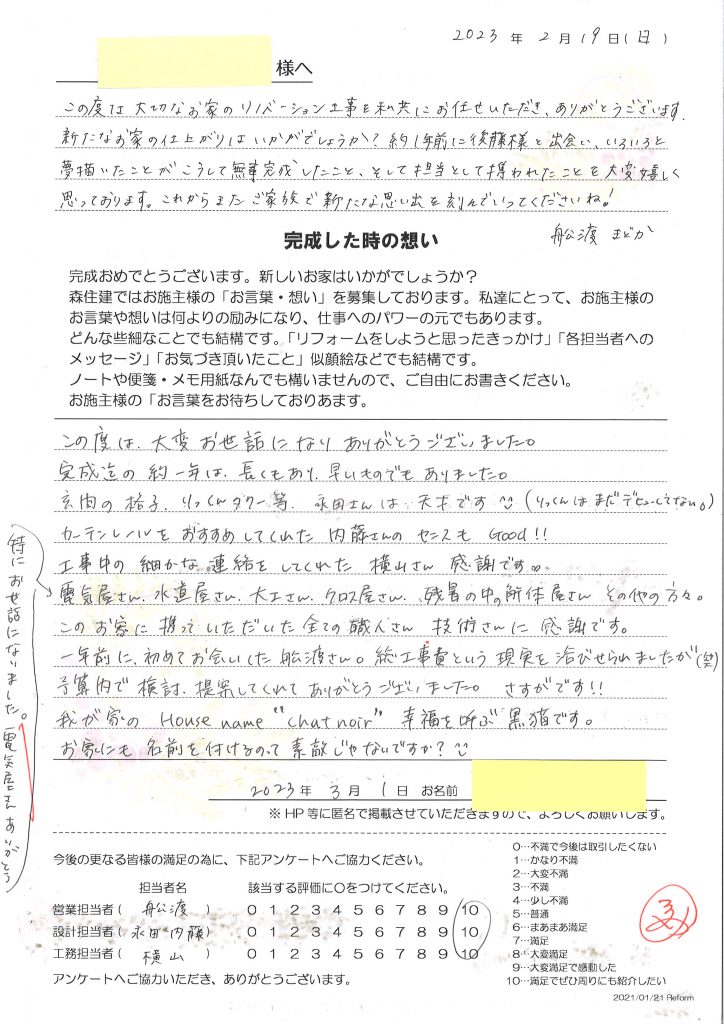 2023 年 2 月 19 日(日)
様へ
この度は大切なお家のリノベーション工事を私共にお任せいただき、ありがとうございます。
新たなお家の仕上がりはいかがでしょうか？約1年前に後藤様と出会い、いろいろと
夢描いたことがこうして無事完成したこと、そして担当として携われたことを大変嬉しく
思っております。これからまたご家族で新たな思い出を刻んでいってくださいね！
舩渡 まどか
完成した時の想い
完成おめでとうございます。新しいお家はいかがでしょうか？
森住建ではお施主様の「お言葉・想い」を募集しております。私達にとって、お施主様の
お言葉や想いは何よりの励みになり、仕事へのパワーの元でもあります。
どんな些細なことでも結構です。「リフォームをしようと思ったきっかけ」「各担当者への
メッセージ」「お気づき頂いたこと」似顔絵などでも結構です。
ノートや便箋・メモ用紙なんでも構いませんので、ご自由にお書きください。
お施主様の「お言葉をお待ちしておりあます。
この度は、大変お世話になりありがとうございました。
完成迄の約一年は、長くもあり、早いものでもありました。
玄関の格子、りっくんタワー等、永田さんは天才です (りっくんはまだデビューしてない。)
カーテンレールをおすすめしてくれた内藤さんのセンスも Good!!
工事中の細かな連絡をしてくれた横山さん感謝です。
電気屋さん、水道屋さん、大工さん、クロス屋さん、残暑の中の解体屋さん その他の方々。
このお家に携っていただいた全ての職人さん 技術さんに感謝です。
一年前に、初めてお会いした舩渡さん。総工事費という現実を浴びせられましたが(笑)
予算内で検討、提案してくれてありがとうございました。さすがです!!
我が家の House name "chat noir" 幸福を呼ぶ黒猫です。
お家にも名前を付けるのって素敵じゃないですか？
特にお世話になりました。電気屋さんありがとう
2023 年 3 月 1 日 お名前
※HP等に匿名で掲載させていただきますので、よろしくお願いします。
今後の更なる皆様の満足の為に、下記アンケートへご協力ください。
担当者名 該当する評価に○をつけてください。
営業担当者( 舩渡 ) 0 1 2 3 4 5 6 7 8 9 10
設計担当者( 永田 内藤 ) 0 1 2 3 4 5 6 7 8 9 10
工務担当者( 横山 ) 0 1 2 3 4 5 6 7 8 9 10
アンケートへご協力いただき、ありがとうございます。
0…不満で今後は取引したくない
1…かなり不満
2…大変不満
3…不満
4…少し不満
5…普通
6…まあまあ満足
7…満足
8…大変満足
9…大変満足で感動した
10…満足でぜひ周りにも紹介したい
2021/01/21 Reform